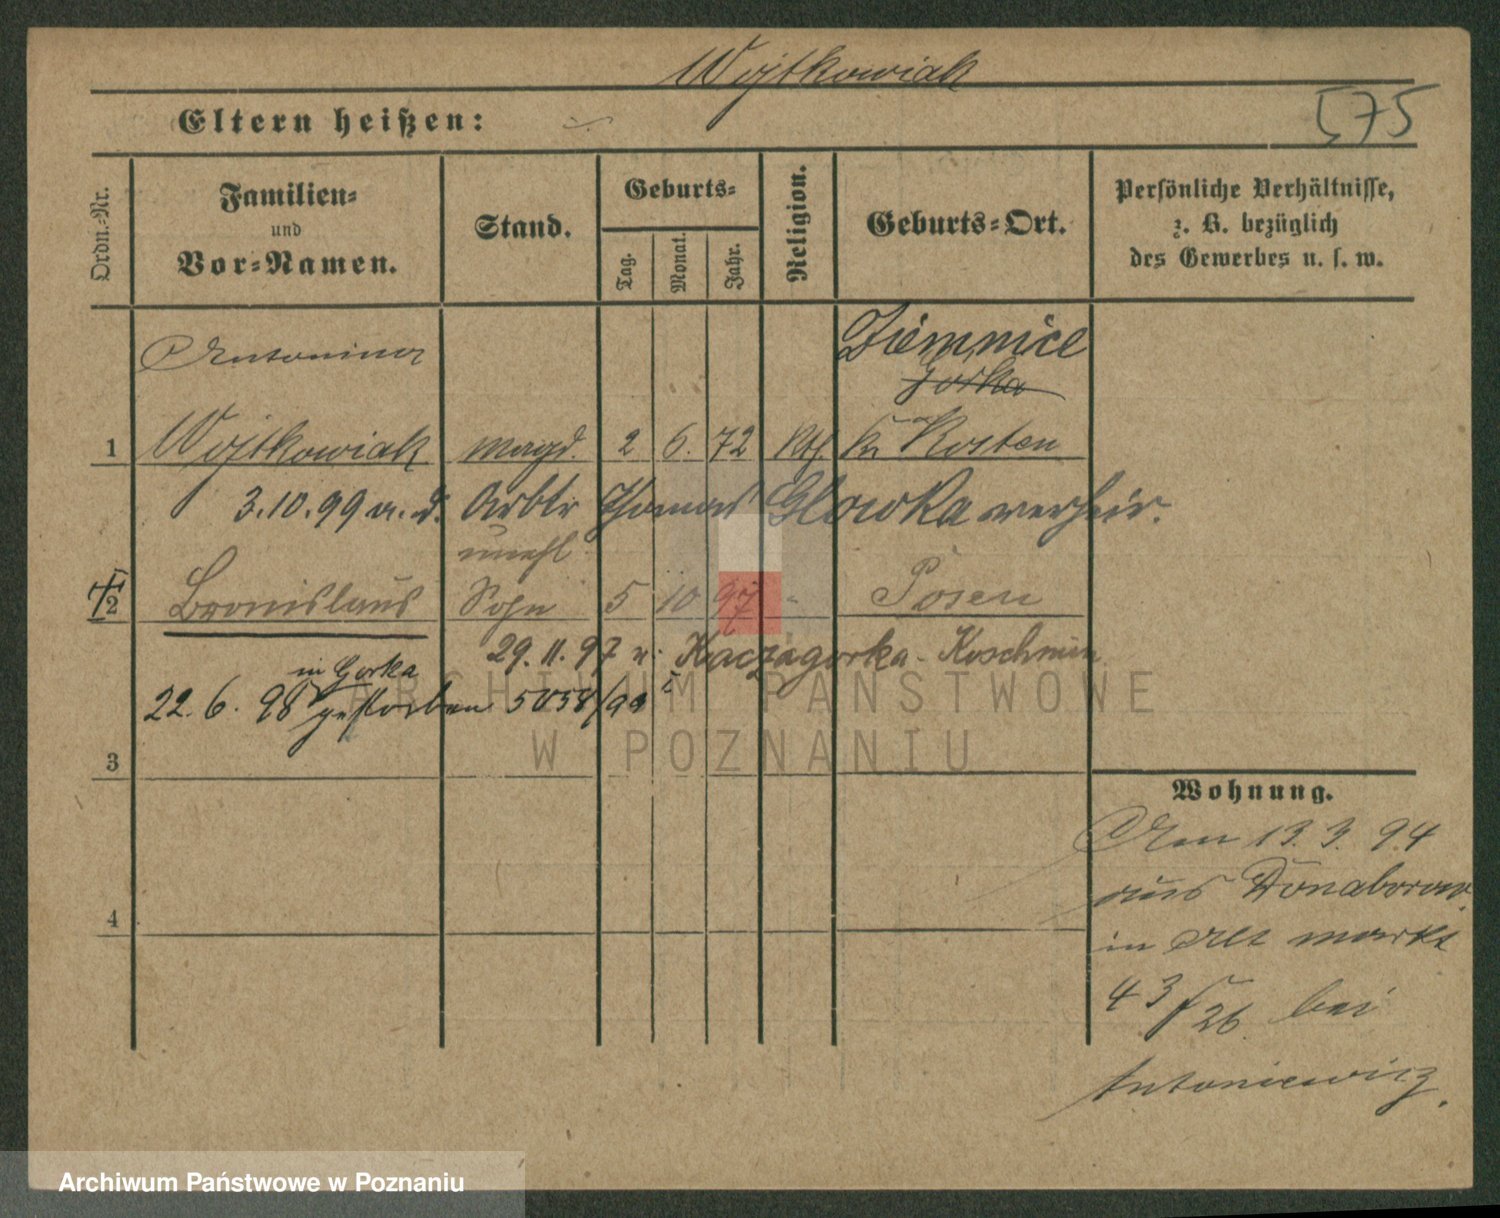 Wojtkowiak
575
Eltern heißen:
Ordn.-Nr.
Familien-
und
Vor-Namen.
Stand.
Geburts-
Tag.
Monat.
Jahr.
Religion.
Geburts-Ort.
Persönliche Verhältnisse,
z. B. bezüglich
des Gewerbes u. s. w.
Antonina
Ziemnice
Gorka
1 Wojtkowiak Magd. 2 6. 72 Kth Kr Kosten
3.10.99 m. d. Arbtr Thomas Glowka verheir.
unehl
2 Bronislaus Sohn 5 10 97 - Posen
29.11.97 n. Kaczagorka - Koschmin
in Gorka
22.6.98 gestorben 5058/99 I
3
4
Wohnung.
Am 13.3.94
aus Donaborow.
in Alt markt
43/26 bei
Antoniewicz.
ARCHIWUM PAŃSTWOWE
W POZNANIU
Archiwum Państwowe w Poznaniu